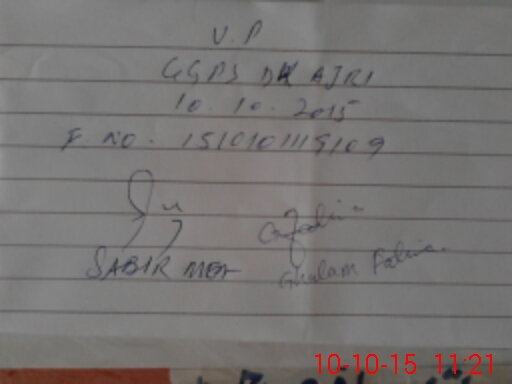 V.P
GGPS DK AJRI
10.10.2015
F no. 1510101119109
SABIR
Ghulam Fatima
10-10-15 11:21